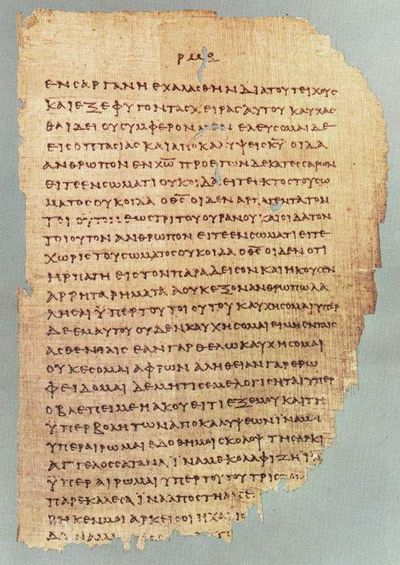 ΕΝ ΣΑΡΓΑΝΗ ΕΧΑΛΑΣΘΗΝ ΔΙΑ ΤΟΥ ΤΕΙΧΟΥΣ
ΚΑΙ ΕΞΕΦΥΓΟΝ ΤΑΣ ΧΕΙΡΑΣ ΑΥΤΟΥ ΚΑΥΧΑΣ
ΘΑΙ ΔΕΙ ΟΥ ΣΥΜΦΕΡΟΝ ΕΛΕΥΣΟΜΑΙ ΔΕ
ΕΙΣ ΟΠΤΑΣΙΑΣ ΚΑΙ ΑΠΟΚΑΛΥΨΕΙΣ ΚΥ ΟΙΔΑ
ΑΝΘΡΩΠΟΝ ΕΝ ΧΩ ΠΡΟ ΕΤΩΝ ΔΕΚΑΤΕΣΣΑΡΩΝ
ΕΙΤΕ ΕΝ ΣΩΜΑΤΙ ΟΥΚ ΟΙΔΑ ΕΙΤΕ ΕΚΤΟΣ ΤΟΥ ΣΩ
ΜΑΤΟΣ ΟΥΚ ΟΙΔΑ ΟΘΣ ΟΙΔΕΝ ΑΡΠΑΓΕΝΤΑ ΤΟΝ
ΤΟΙΟΥΤΟΝ ΕΩΣ ΤΡΙΤΟΥ ΟΥΡΑΝΟΥ ΚΑΙ ΟΙΔΑ ΤΟΝ
ΤΟΙΟΥΤΟΝ ΑΝΘΡΩΠΟΝ ΕΙΤΕ ΕΝ ΣΩΜΑΤΙ ΕΙΤΕ
ΧΩΡΙΣ ΤΟΥ ΣΩΜΑΤΟΣ ΟΥΚ ΟΙΔΑ ΟΘΣ ΟΙΔΕΝ ΟΤΙ
ΗΡΠΑΓΗ ΕΙΣ ΤΟΝ ΠΑΡΑΔΕΙΣΟΝ ΚΑΙ ΗΚΟΥΣΕΝ
ΑΡΡΗΤΑ ΡΗΜΑΤΑ Α ΟΥΚ ΕΞΟΝ ΑΝΘΡΩΠΩ ΛΑ
ΛΗΣΑΙ ΥΠΕΡ ΤΟΥ ΤΟΙΟΥΤΟΥ ΚΑΥΧΗΣΟΜΑΙ ΥΠΕΡ
ΔΕ ΕΜΑΥΤΟΥ ΟΥΔΕΝ ΚΑΥΧΗΣΟΜΑΙ ΕΙ ΜΗ ΕΝ ΤΑΙΣ
ΑΣΘΕΝΕΙΑΙΣ ΕΑΝ ΓΑΡ ΘΕΛΩ ΚΑΥΧΗΣΟΜΑΙ
ΟΥΚ ΕΣΟΜΑΙ ΑΦΡΩΝ ΑΛΗΘΕΙΑΝ ΓΑΡ ΕΡΩ
ΦΕΙΔΟΜΑΙ ΔΕ ΜΗ ΤΙΣ ΕΜΕ ΛΟΓΙΣΗΤΑΙ ΥΠΕΡ
Ο ΒΛΕΠΕΙ ΜΕ Η ΑΚΟΥΕΙ ΤΙ ΕΞ ΕΜΟΥ ΚΑΙ ΤΗ
ΥΠΕΡΒΟΛΗ ΤΩΝ ΑΠΟΚΑΛΥΨΕΩΝ ΙΝΑ ΜΗ
ΥΠΕΡΑΙΡΩΜΑΙ ΕΔΟΘΗ ΜΟΙ ΣΚΟΛΟΨ ΤΗ ΣΑΡΚΙ
ΑΓΓΕΛΟΣ ΣΑΤΑΝΑ ΙΝΑ ΜΕ ΚΟΛΑΦΙΖΗ ΙΝΑ
ΥΠΕΡΑΙΡΩΜΑΙ ΥΠΕΡ ΤΟΥΤΟΥ ΤΡΙΣ
ΠΑΡΕΚΑΛΕΣΑ ΙΝΑ ΑΠΟΣΤΗ
ΚΕΝ ΜΟΙ ΑΡΚΕΙ ΣΟΙ Η ΧΑΡΙΣ